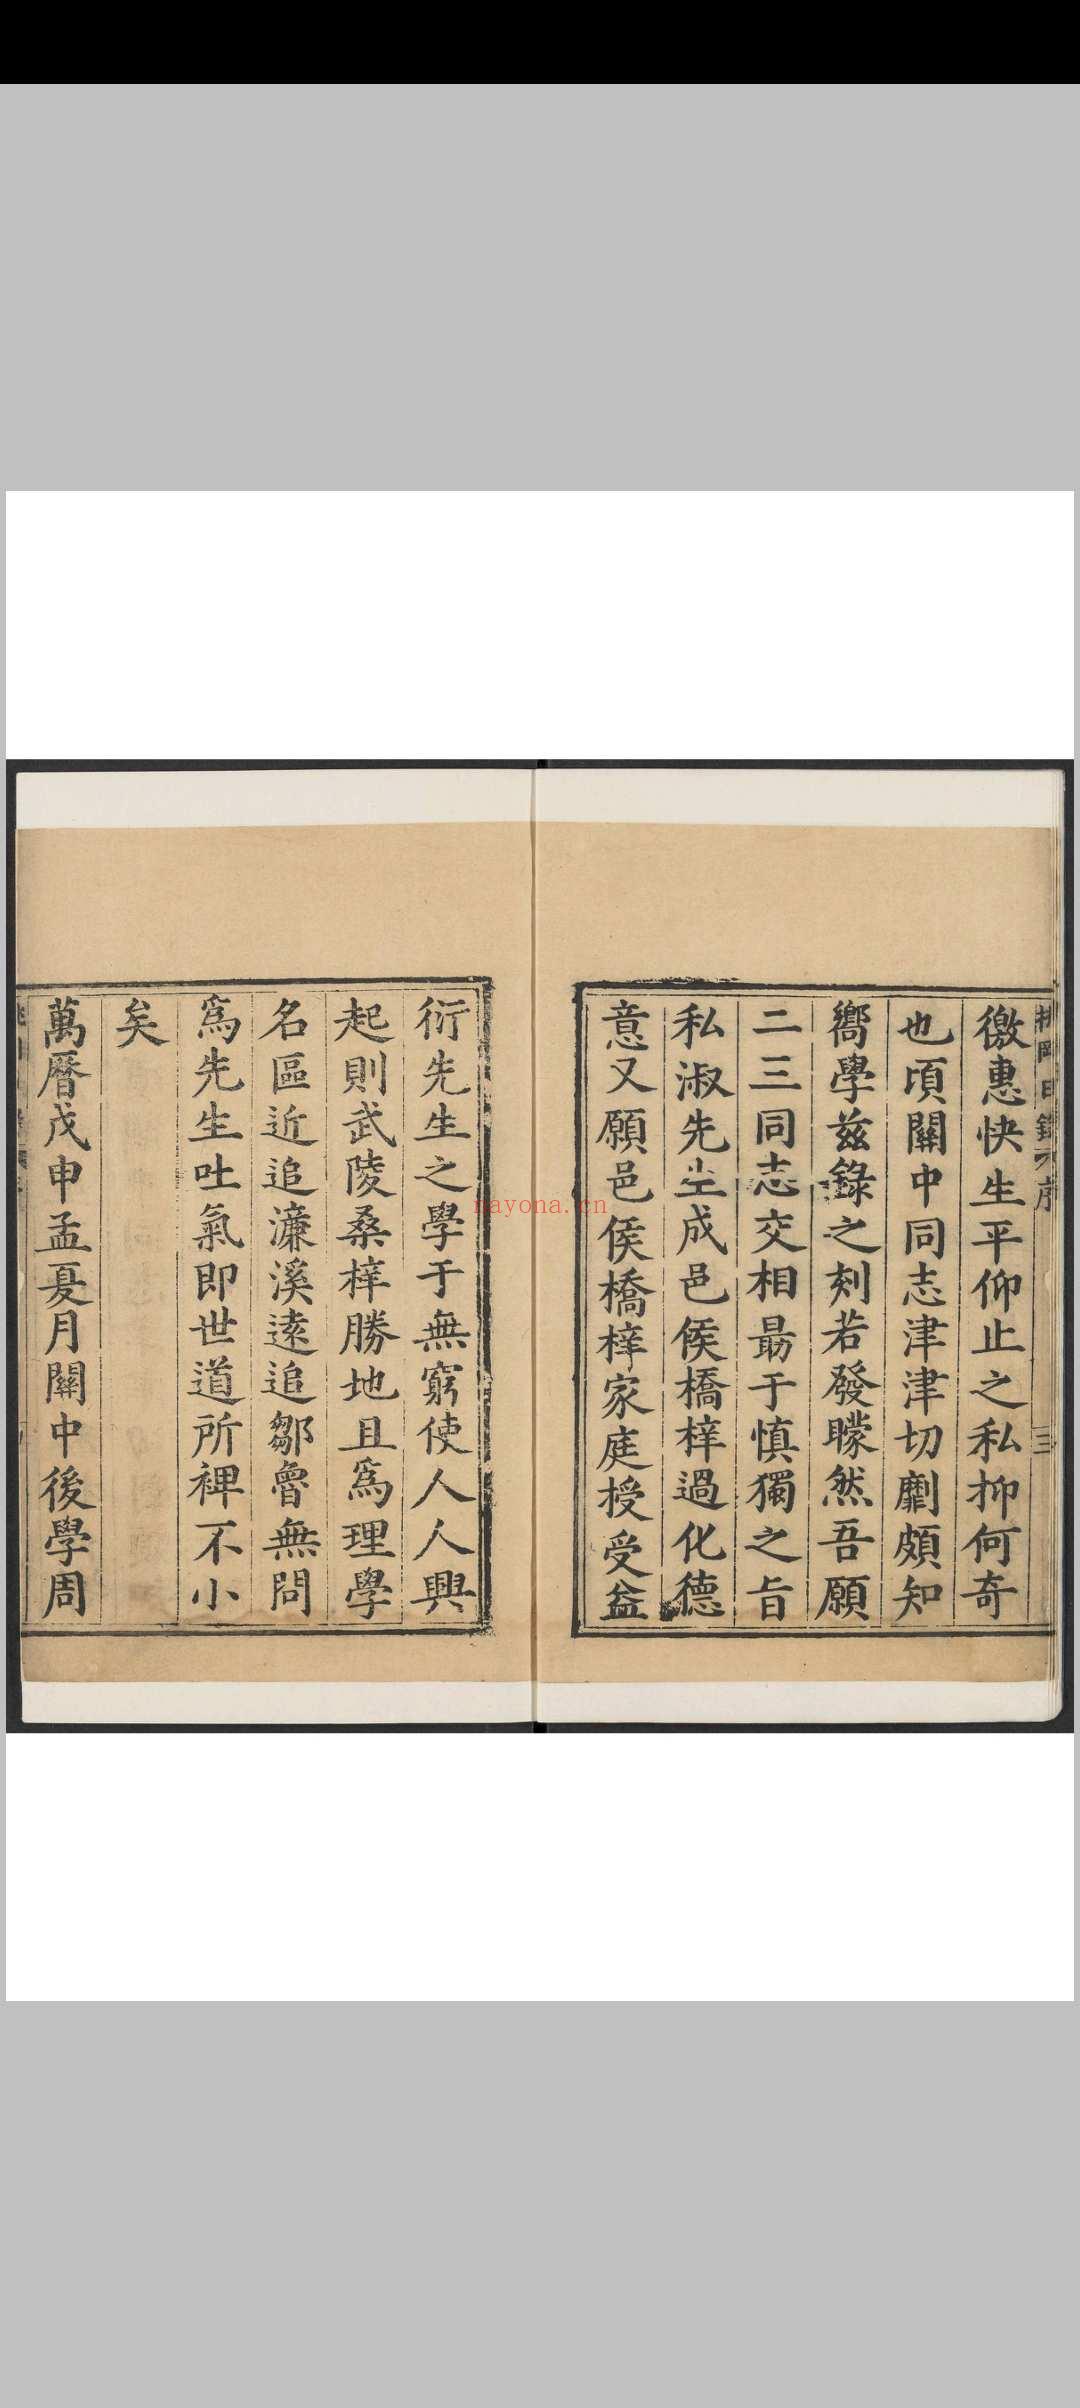 徼惠快生平仰止之私抑何奇
也頃關中同志津津切劘頗知
嚮學兹錄之刻若發矇然吾願
二三同志交相最于慎獨之旨
私淑先生成邑侯橋梓過化德
意又願邑侯橋梓家庭授受益
衍先生之學于無窮使人人興
起則武陵桑梓勝地且為理學
名區近追濂溪遠追鄒魯無問
為先生吐氣即世道所裨不小
矣
萬曆戊申孟夏月關中後學周
序
三
nayona.cn